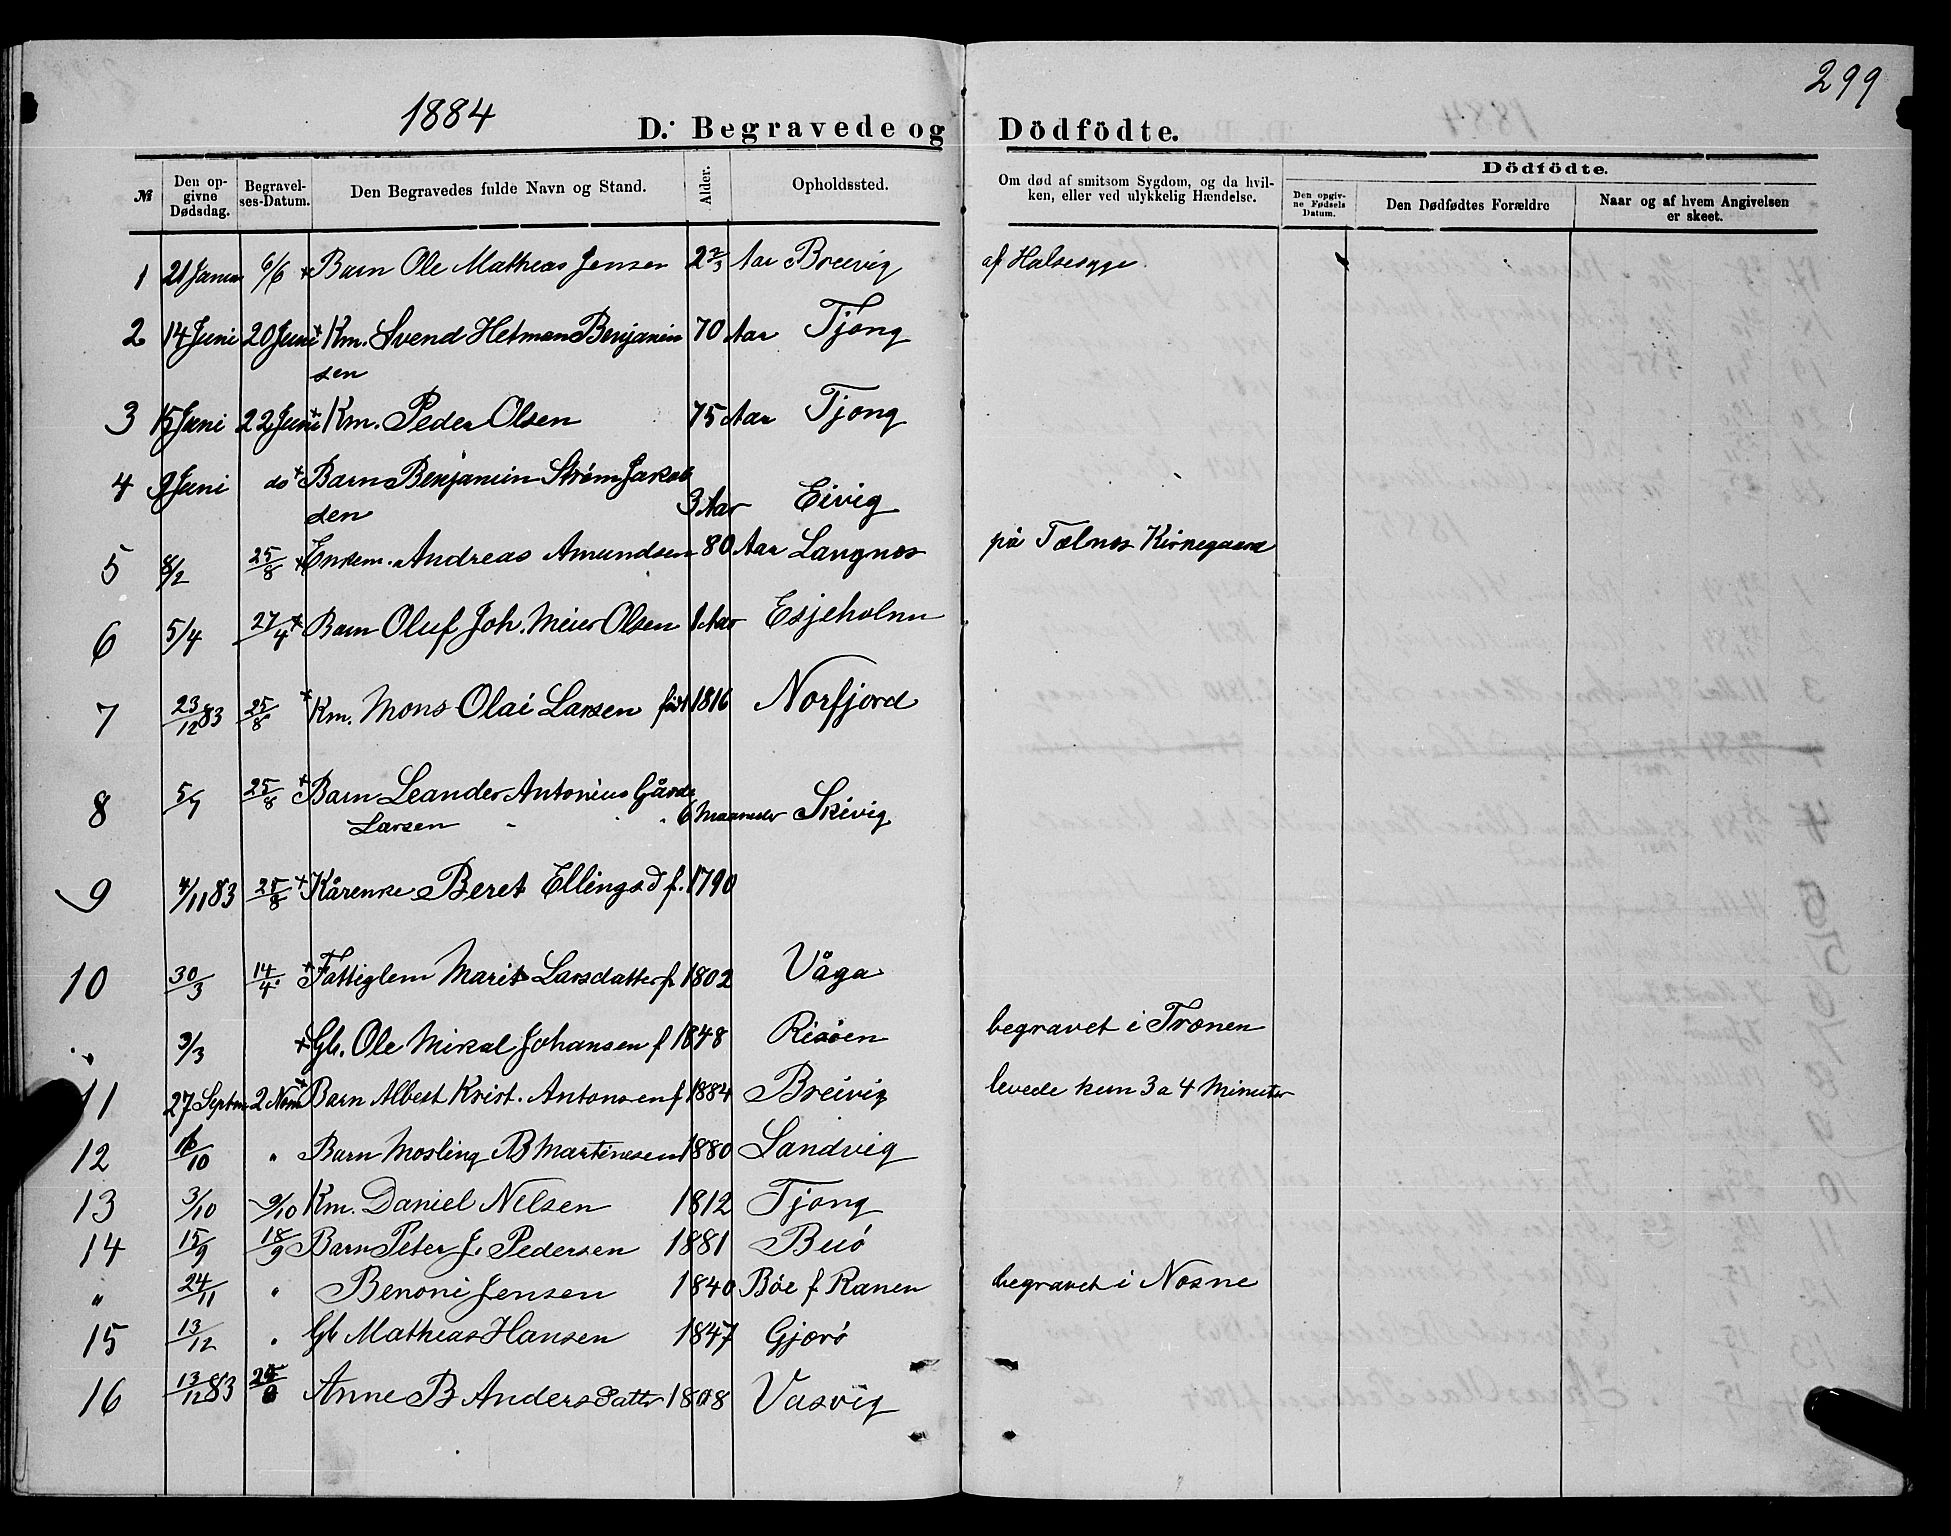 299
1884
D. Begravede og Dödfödte.
№ Den opgivne Dødsdag. Begravelses-Datum. Den Begravedes fulde Navn og Stand. Alder. Opholdssted. Om død af smitsom Sygdom, og da hvilken, eller ved ulykkelig Hændelse. Dödfödte. Den opgivne Fødsels Datum. Den Dødfødtes Forældre Naar og af hvem Angivelsen er skeet.
1 21 Januar 6/6 + Barn Ole Mathias Jensen 2 2/3 Aar Breivig af Halsesyge.
2 14 Juni 20 Juni + Km. Svend Hetman Benjamin 70 Aar Tjong
sen
3 15 Juni 22 Juni + Km. Peder Olsen 75 Aar Tjong
4 9 Juni do + Barn Benjamin Strøm Jakob
sen 3 Aar Eivig
5 8/2 25/8 + Enkem. Andreas Amundsen 80 Aar Langnes på Tælnes Kirkegaard
6 5/4 27/4 + Barn Oluf Joh. Meier Olsen 1 Aar Esjeholm
7 23/12 83 25/8 + Km. Mons Olai Larsen født 1816 Norfjord
8 5/7 25/8 + Barn Leander Antonius Gårde
Larsen 6 Maaneder Skivig
9 4/11 83 25/8 + Kårenke Beret Ellingsd f. 1790
10 30/3 14/4 + Fattiglem Marit Larsdatter f. 1802 Våga
" 3/3 + Gb. Ole Mikal Johansen f 1848 Risøen begravet i Trænen
11 27 Septem 2 Nov + Barn Albert Krist. Antonsen f 1884 Breivig levede kun 3 a 4 Minuter
12 16/10 " Barn Mosling B Martinesen 1880 Sandvig
13 3/10 9/10 Km. Daniel Nilsen 1812 Tjong
14 15/9 18/9 Barn Peter J. Pedersen 1881 Buø
" 24/11 " Benoni Jensen 1840 Böe f Ranen begravet i Næsne
15 13/12 " Gb Mathias Hansen 1847 Gjærø
16 13/12 83 25/8 Anne B Andersdatter 1808 Vasvig